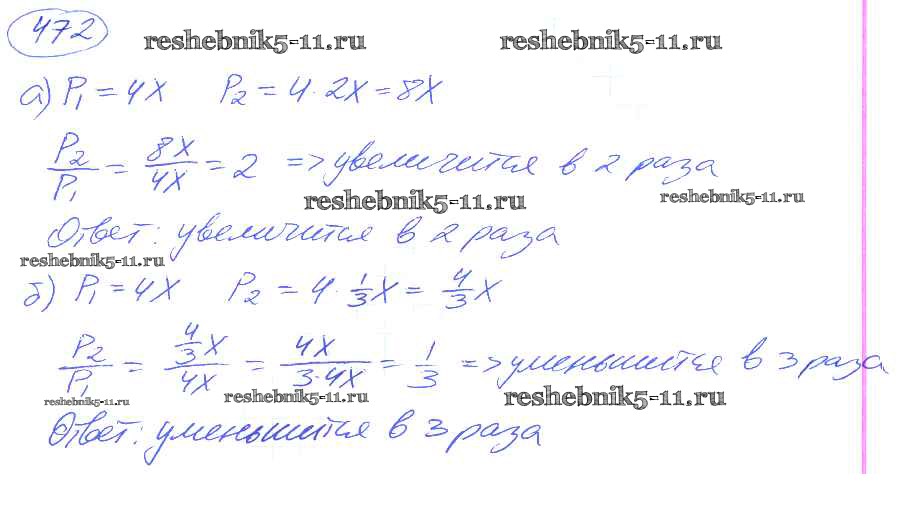 472
reshebnik5-11.ru reshebnik5-11.ru
а) P₁ = 4x P₂ = 4·2x = 8x
P₂/P₁ = 8x/4x = 2 => увеличится в 2 раза
reshebnik5-11.ru reshebnik5-11.ru
Ответ: увеличится в 2 раза
reshebnik5-11.ru
б) P₁ = 4x P₂ = 4·1/3x = 4/3x
P₂/P₁ = 4/3x/4x = 4x/3·4x = 1/3 => уменьшится в 3 раза
reshebnik5-11.ru reshebnik5-11.ru reshebnik5-11.ru
Ответ: уменьшится в 3 раза